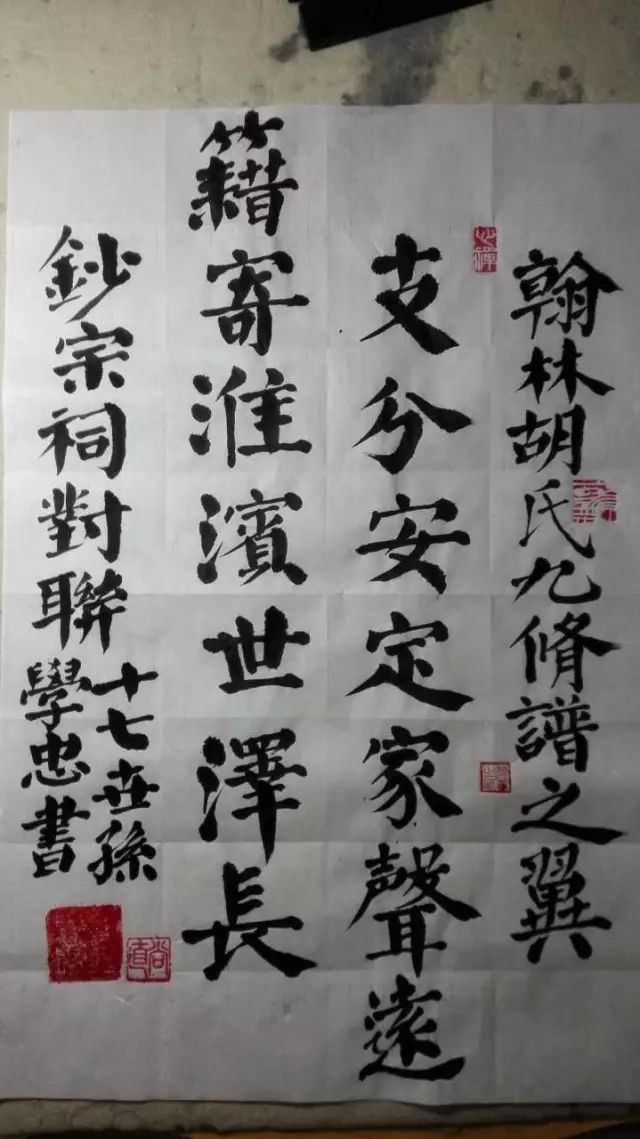 翰林胡氏九脩譜之翼
支分安定家聲遠
籍寄淮濱世澤長
鈔宗祠對聯
十七世孫
學忠書